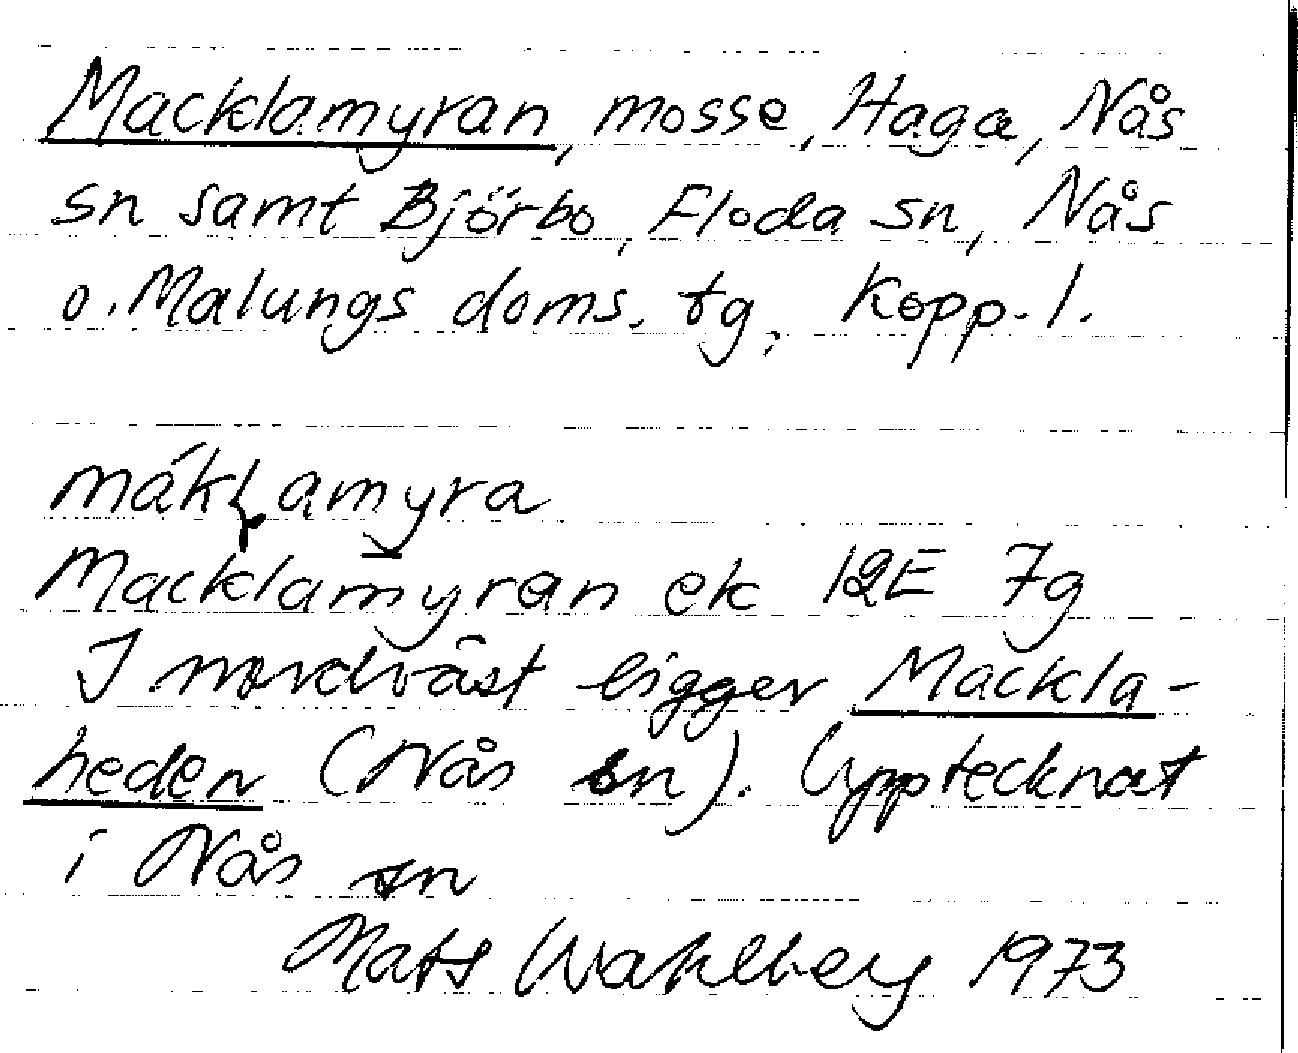 Macklamyran, mosse, Haga, Nås
sn samt Björbo, Floda sn, Nås
o. Malungs doms. tg, Kopp. l.
Macklamyran ek 12E 7g
I nordväst ligger Mackla-
heden (Nås sn). Upptecknat
i Nås sn
Mats Wahlberg 1973